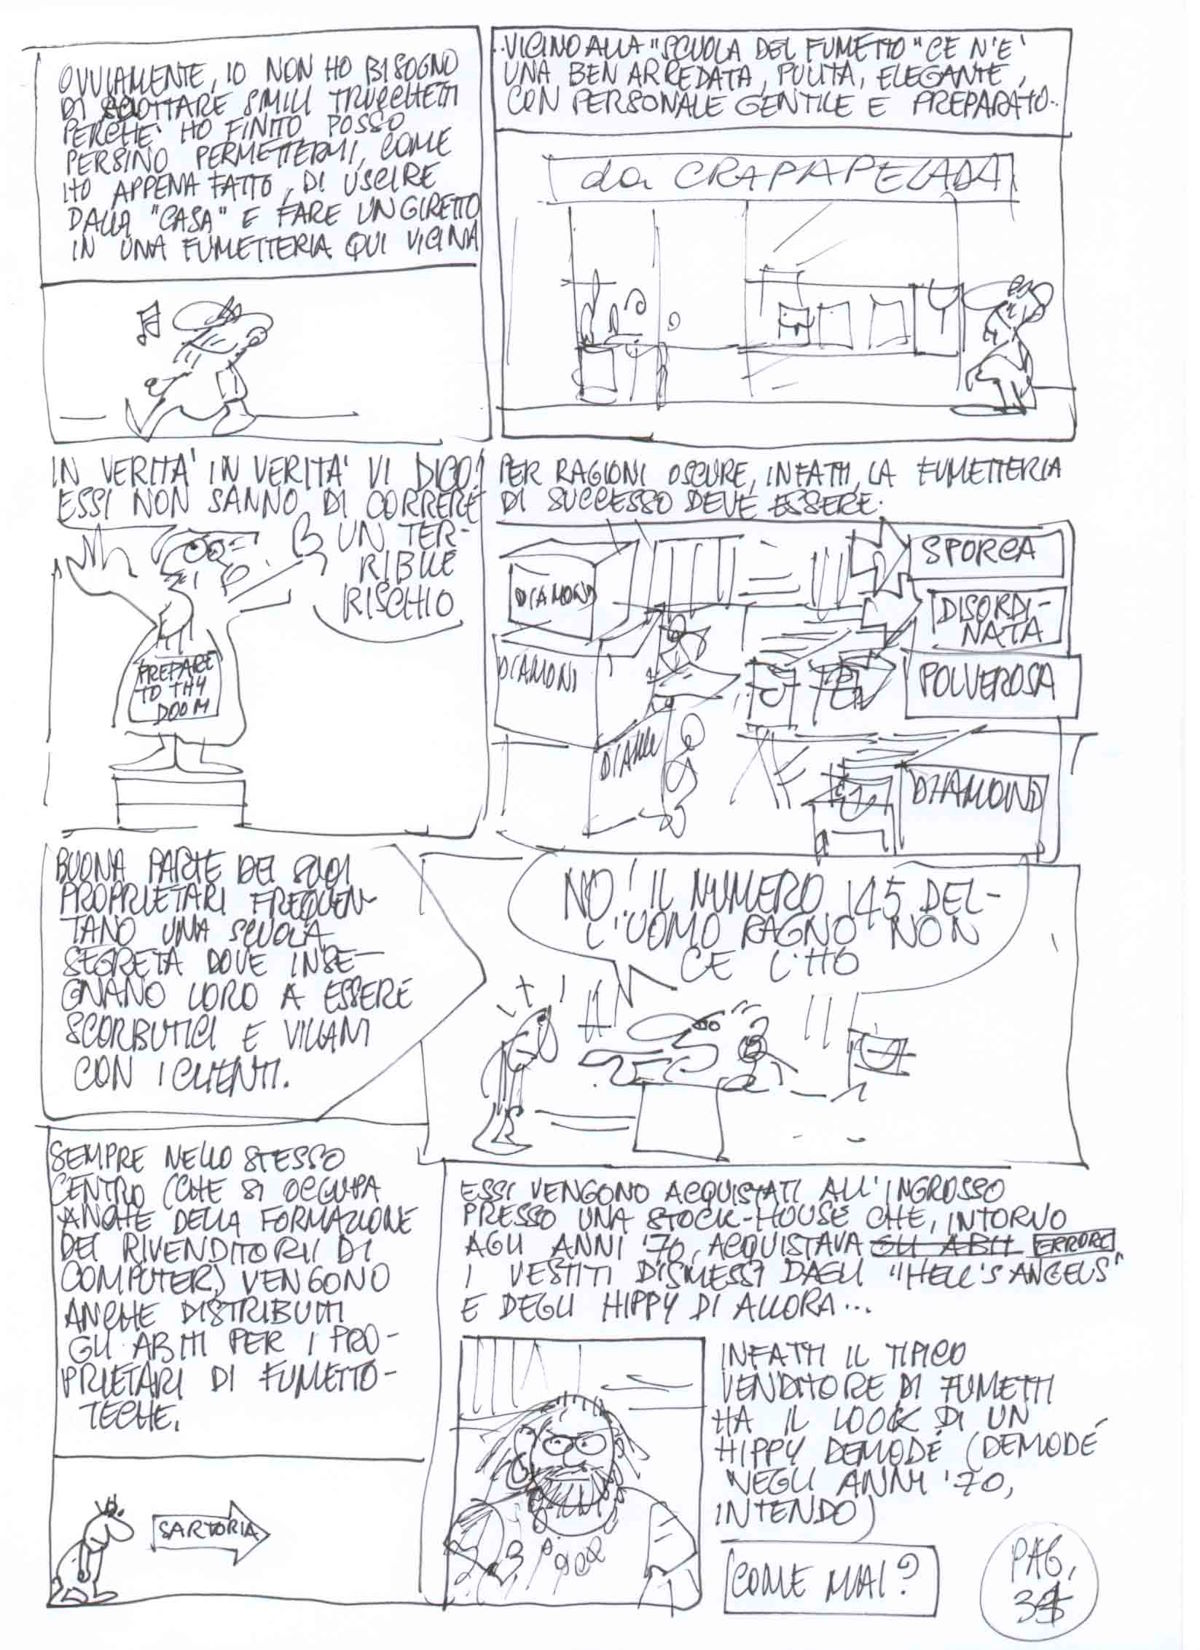 OVVIAMENTE, IO NON HO BISOGNO
DI ADOTTARE SIMILI TRUCCHETTI
PERCHE' HO FINITO POSSO
PERSINO PERMETTERMI, COME
HO APPENA FATTO, DI USCIRE
DALLA "CASA" E FARE UN GIRETTO
IN UNA FUMETTERIA QUI VICINA
VICINO ALLA "SCUOLA DEL FUMETTO" CE N'E'
UNA BEN ARREDATA, PULITA, ELEGANTE,
CON PERSONALE GENTILE E PREPARATO..
da CRAPAPELADA
IN VERITA' IN VERITA' VI DICO!
ESSI NON SANNO DI CORRERE
UN TER-
RIBILE
RISCHIO
PREPARE
TO THY
DOOM
PER RAGIONI OSCURE, INFATTI, LA FUMETTERIA
DI SUCCESSO DEVE ESSERE:
SPORCA
DISORDI-
NATA
POLVEROSA
DIAMOND
DIAMOND
DIAMOND
BUONA PARTE DEI SUOI
PROPRIETARI FREQUEN-
TANO UNA SCUOLA
SEGRETA DOVE INSE-
GNANO LORO A ESSERE
SCORBUTICI E VILLANI
CON I CLIENTI.
NO! IL NUMERO 145 DEL-
L'UOMO RAGNO NON
CE L'HO
SEMPRE NELLO STESSO
CENTRO (CHE SI OCCUPA
ANCHE DELLA FORMAZIONE
DEI RIVENDITORI DI
COMPUTER) VENGONO
ANCHE DISTRIBUITI
GLI ABITI PER I PRO-
PRIETARI DI FUMETTO-
TECHE.
SARTORIA
ESSI VENGONO ACQUISTATI ALL'INGROSSO
PRESSO UNA STOCK-HOUSE CHE, INTORNO
AGLI ANNI '70, ACQUISTAVA GLI ABITI ERRORE
I VESTITI DISMESSI DAGLI "HELL'S ANGELS"
E DEGLI HIPPY DI ALLORA...
INFATTI IL TIPICO
VENDITORE DI FUMETTI
HA IL LOOK DI UN
HIPPY DEMODÉ (DEMODÉ
NEGLI ANNI '70,
INTENDO)
COME MAI?
PAG.